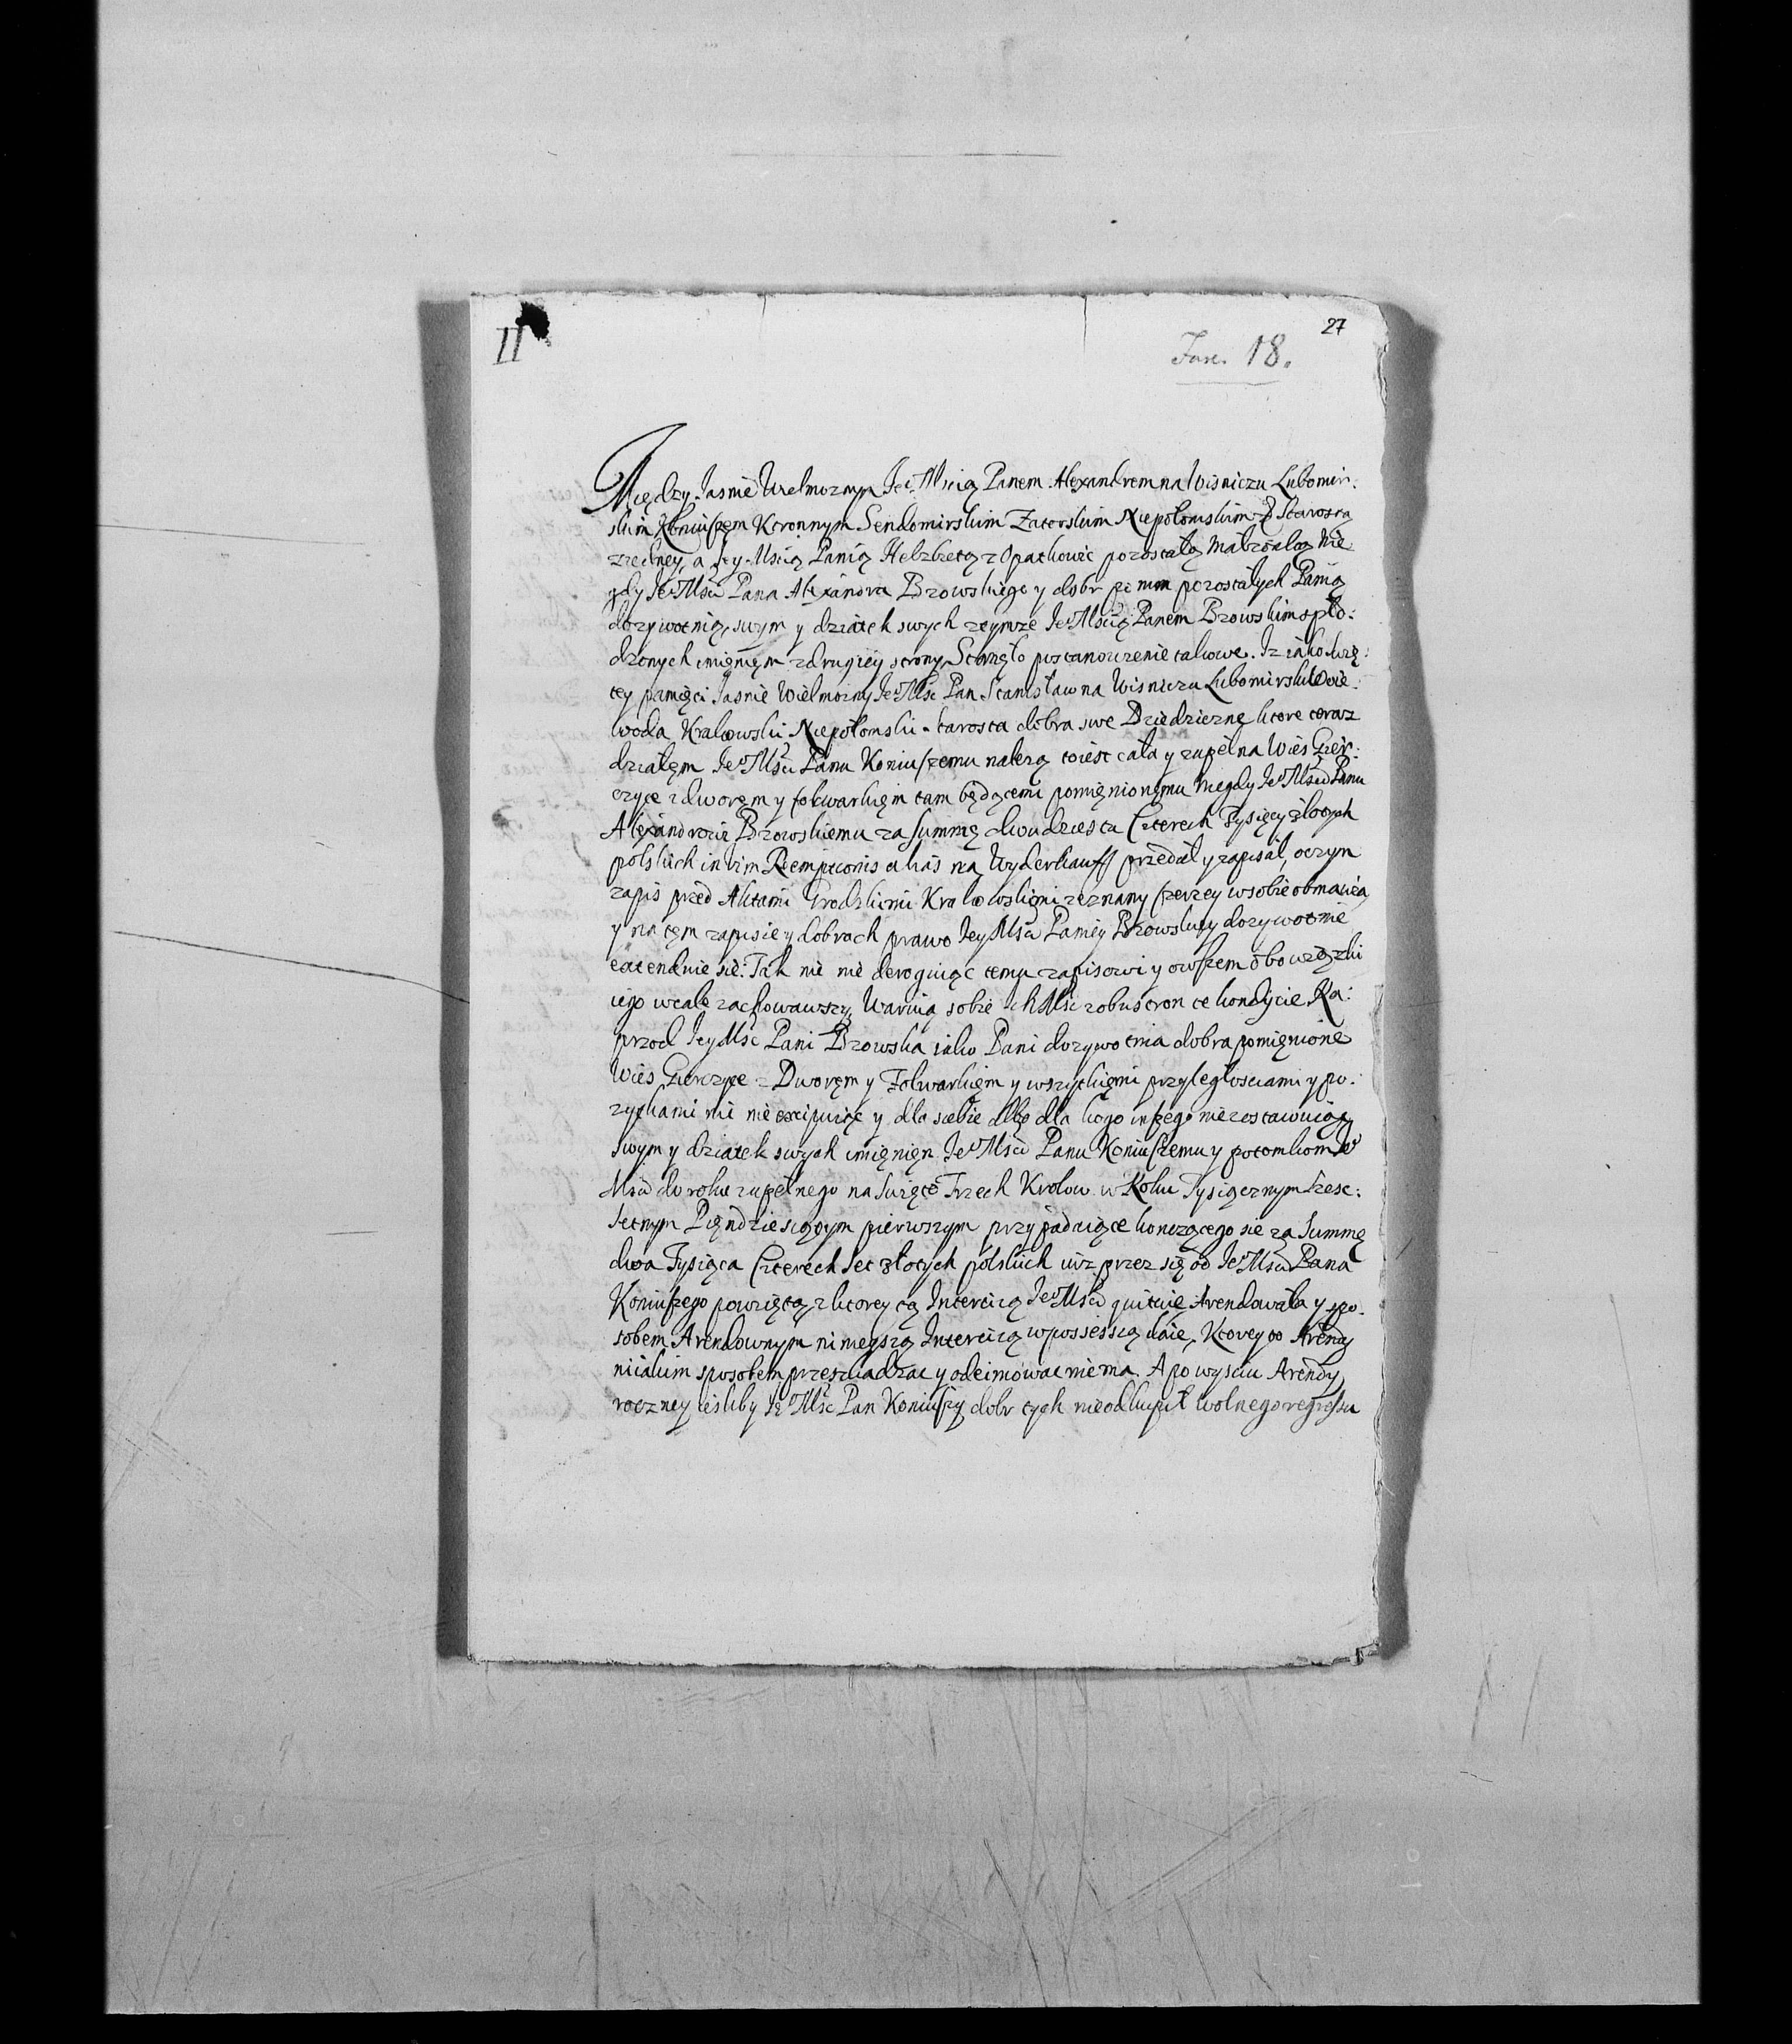 II
27
Fasc. 18.
Między Jasnie Wielmoznym Je° Mscią Panem Alexandrem na Wisniczu Lubomir:
skim Koniuszęm Koronnym Sendomirskim Zatorskim Niepołomskim & Starostą
z iedney, a Jey Mscią Panią Helzbietą z Opatkowic pozostałą Małżonką Nie
gdy Je° Msci Pana Alexandra Brzowskiego y dobr po nim pozostałych Panią
dozywotnią, swym y dziatek swych z tymze Je° Mscią Panem Brzowskim spło:
dzonych imięnięm z drugiey strony, Stanęło postanowienie takowe. Iz iako święː
tey pamięci Jasnie Wielmozny Je° Msc Pan Stanisław na Wisniczu Lubomirski Woie:
woda Krakowski Niepołomski Starosta dobra swe Dziedziczne ktore teraz
działęm Je° Msci Panu Koniuszemu nalezą toiest cała y zupełna Wieś Gier:
czyce z dworęm y folwarkięm tam będącemi pomięnionemu niegdy Je° Msci Panu
Alexandrowi Brzowskiemu za Summę dwudziestu Czterech Tysięcy złotych
polskich in vim Reemptionis alias na Wyderkauff przedał y zapisał, oczym
zapis przed Aktami Grodzkiemi Krakowskięmi zeznany szerzey w sobie obmawia
y na tęm zapisie y dobrach prawo Jey Msci Paniey Brzowskiey dozywotnie
extenduie się: Tak nic nie deroguiąc temu zapisowi y owszem obowiązki
iego wcale zachowawszy, Waruią sobie Ich Msc z obustron te kondycie. Na:
przod Jey Msc Pani Brzowska iako Pani dozywotnia dobra pomięnione
Wieś Gierczyce z Dworęm y Folwarkięm y wszytkięmi przyległosciami y po:
zytkami nic nie excipuiąc y dla siebie albo dla kogo inszego nie zostawuiąc
swym y dziatek swych imięnięm Je° Msci Panu Koniuszemu y potomkom Je°
Msci do roku zupełnego na Święto Trzech Krolow w Roku Tysiącznym Szesc:
setnym Pięndziesiątym pierwszym przypadaiące konczącego się za Summę
dwa Tysiąca Czterech set złotych polskich iuz przez się od Je° Msci Pana
Koniuszego powziętą, z ktorey tą Intercizą Je° Msci quituie Arendowała y spo:
sobem Arendownym ninieyszą Intercizą w possessią daie, Ktorey to Arendy
niiakim sposobem przeszkadzac y odeimowac nie ma. A po wysciu Arendy
roczney iesliby Je° Msc Pan Koniuszy dobr tych nie odkupił wolnego regressu